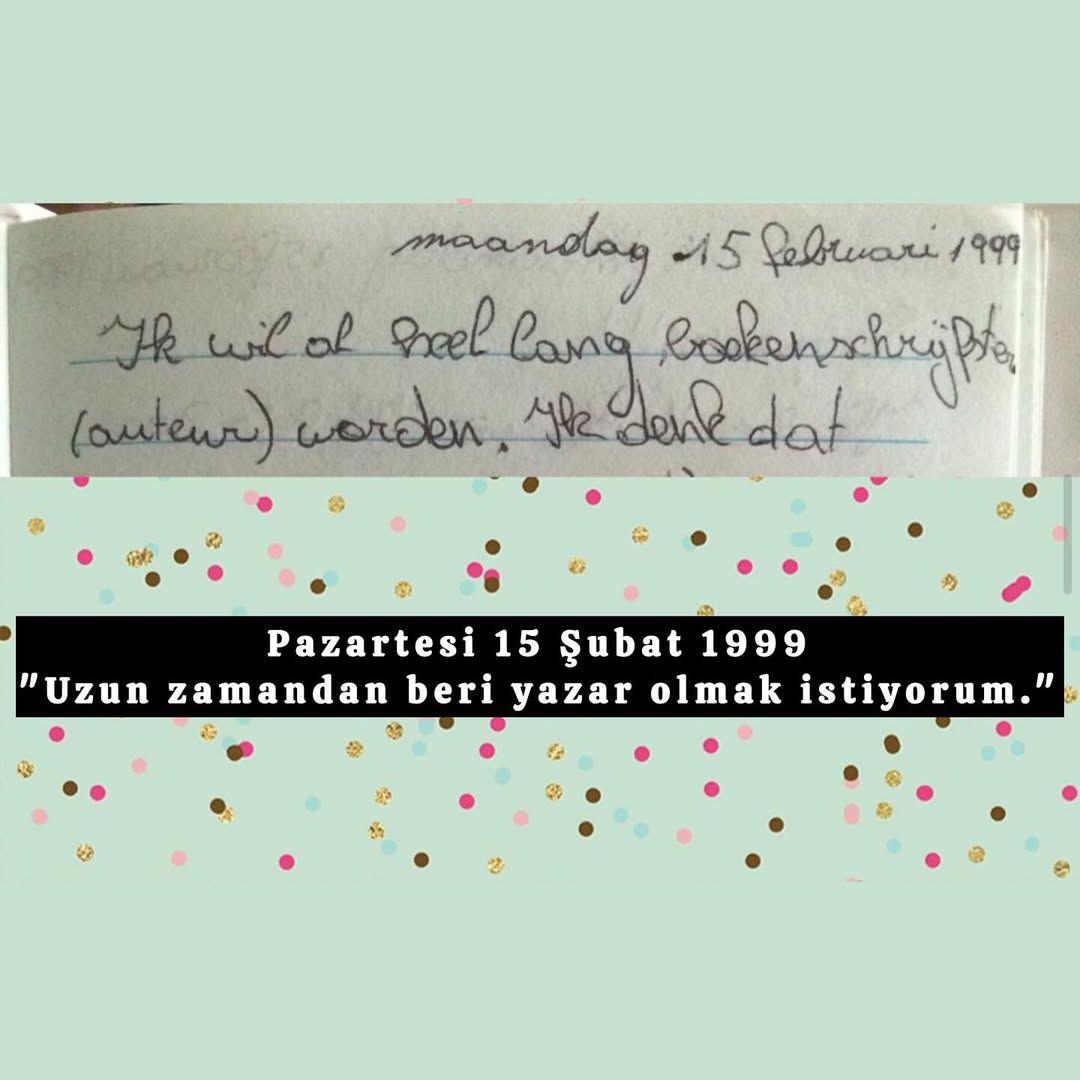 maandag 15 februari 1999
Ik wil al heel lang boekenschrijfster
(auteur) worden. Ik denk dat
Pazartesi 15 Şubat 1999
"Uzun zamandan beri yazar olmak istiyorum."